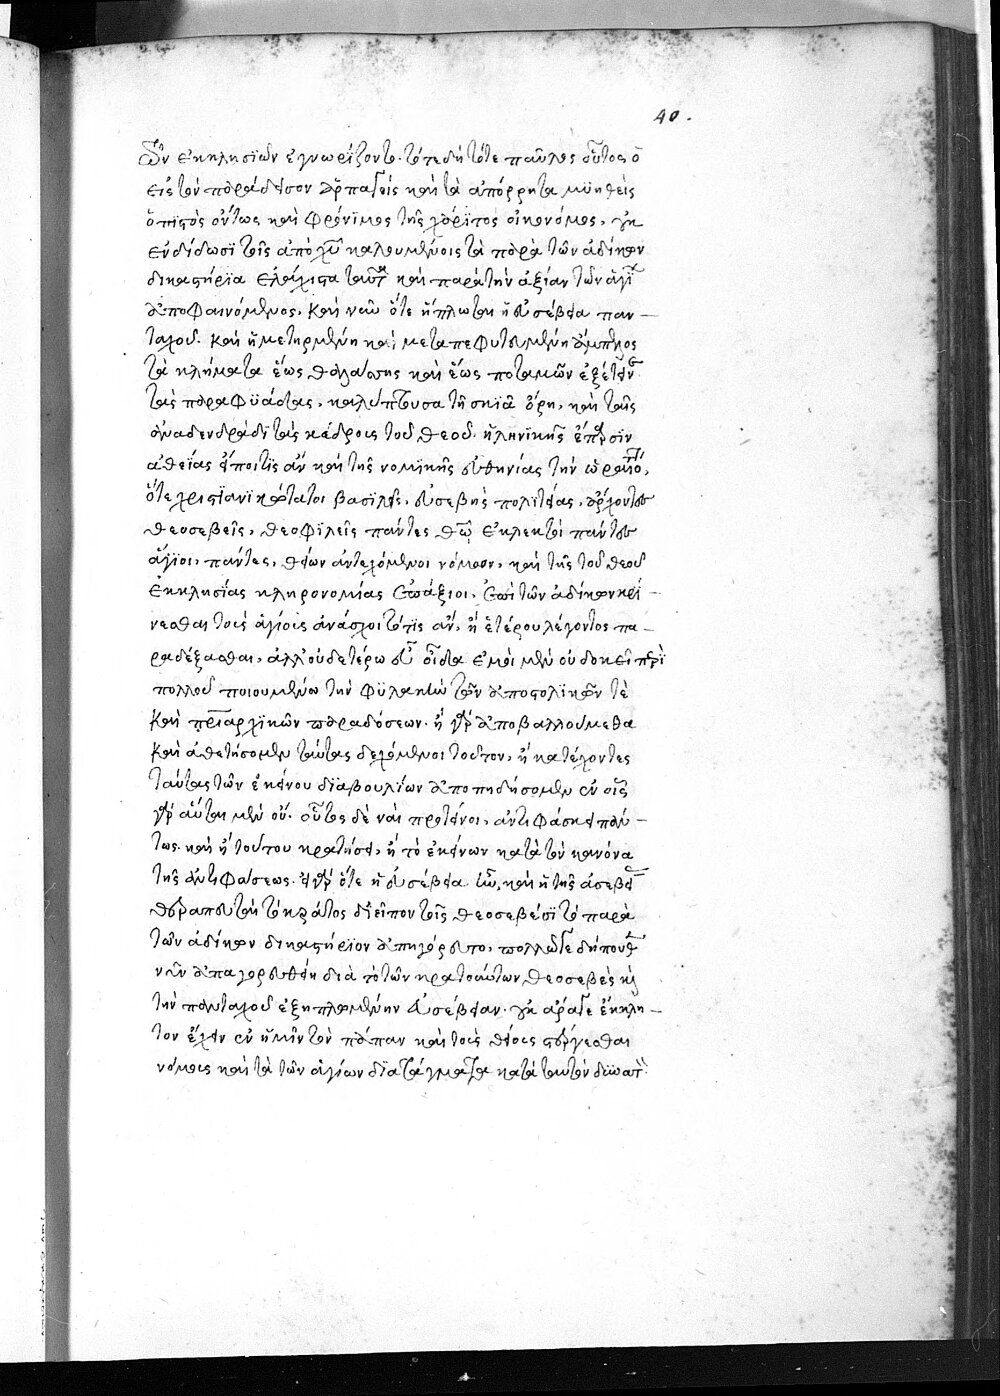 40.
ὧν ἐκκλησιῶν ἐγνωρίζοντο. τότε δὴ τότε παῦλος οὗτος ὁ
εἰς τὸν παράδεισον ἁρπαγεὶς καὶ τὰ ἀπόρρητα μυηθεὶς
ὁ πιστὸς ὄντως καὶ φρόνιμος τῆς χάριτος οἰκονόμος,
ἐνδίδωσι τοῖς ἀπὸ χυ καλουμένοις τὰ παρὰ τῶν ἀδίκων
δικαστήρια ἐλάχιστα ταῦτα καὶ παρὰ τὴν ἀξίαν τῶν ἁγί
ἀποφαινόμενος, καὶ νῦν ὅτε ἥπλωται ἡ εὐσέβεια παν
ταχοῦ. καὶ ἡ μετηρμένη καὶ μεταπεφυτευμένη ἄμπελος
τὰ κλήματα ἕως θαλάσσης καὶ ἕως ποταμῶν ἐξέτεινε
τὰς παραφυάδας, καλύπτουσα τῇ σκιᾷ ὄρη, καὶ ταῖς
ἀναδενδράσι τὰς κέδρους τοῦ θεοῦ. ἑλληνικῆς
ἀθείας εἴποι τις ἂν καὶ τῆς νομικῆς εὐθηνίας τὴν
ὅτε χριστιανικώτατοι βασιλεῖς, εὐσεβὴς πολιτεία, ἄρχοντες
θεοσεβεῖς, θεοφιλεῖς πάντες θῶ ἐκλεκτοὶ πάντες
ἅγιοι, πάντες, θείων ἀντεχόμενοι νόμων, καὶ τῆς τοῦ θεοῦ
ἐκκλησίας κληρονομίας ἐπάξιοι, ἐπὶ τῶν ἀδίκων κρί
νεσθαι τοὺς ἁγίους ἀνάσχοιτό τις ἂν, ἢ ἑτέρου λέγοντος πα
ραδέξασθαι, ἀλλ' οὐδετέρω εὖ οἶδα ἐμοὶ μὲν οὐ δοκεῖ περὶ
πολλοῦ ποιουμένω τὴν φυλακὴν τῶν ἀποστολικῶν τὲ
καὶ πριαρχικῶν παραδόσεων. ἢ γὰρ ἀποβαλλούμεθα
καὶ ἀθετήσομεν ταύτας δεχόμενοι τοῦτον, ἢ κατέχοντες
ταύτας τῶν ἐκείνου διαβουλίων ἀποπηδήσομεν ἐν οἷς
γὰρ αὗται μὲν οὔ. οὗτος δὲ ναὶ προτείνοι, ἀντιφάσκει πάν
τως. καὶ ἢ τούτου κρατήσει, ἢ τὸ ἐκείνων κατὰ τὸν κανόνα
τῆς ἀντιφάσεως. εἰ γὰρ ὅτε ἡ εὐσέβεια ἦν, καὶ ἡ τῆς ἀσεβεί
θεραπευτὴ τὸ κράτος διεῖπον τοῖς θεοσεβέσι τὸ παρὰ
τῶν ἀδίκων δικαστήριον ἀπηγόρευτο, πολλῷ γε δήπουθεν
νῦν ἀπαγορευθείη διὰ τὸ τῶν κρατούντων θεοσεβὲς καὶ
τὴν πανταχοῦ ἐξηπλωμένην εὐσέβειαν. ἆρά γε ἔκκλη
τον ἔχειν ἐν ἡμῖν τὸν πάπαν καὶ τοῖς θείοις στέργεσθαι
νόμοις καὶ τὰ τῶν ἁγίων διατάγματα κατὰ ταυτὸν